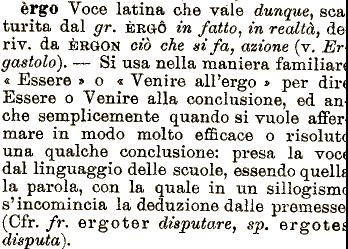 èrgo Voce latina che vale dunque, sca
turita dal gr. ÈRGÔ in fatto, in realtà, de
riv. da ÈRGON ciò che si fa, azione (v. Er
gastolo). — Si usa nella maniera familiare
« Essere » o « Venire all'ergo » per dire
Essere o Venire alla conclusione, ed an-
che semplicemente quando si vuole affer-
mare in modo molto efficace o risoluto
una qualche conclusione: presa la voce
dal linguaggio delle scuole, essendo quella
la parola, con la quale in un sillogismo
s'incomincia la deduzione dalle premesse
(Cfr. fr. ergoter disputare, sp. ergotes
disputa).